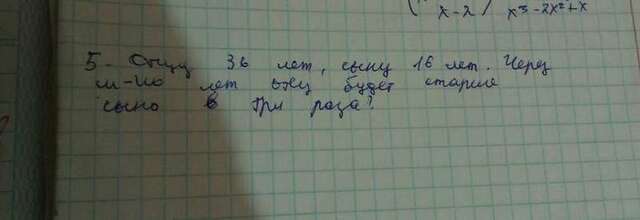 x-2 x³-2x²+x
5- Отцу 36 лет, сыну 16 лет. Через
лет отец будет старше
сына в три раза?